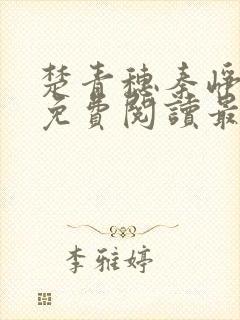 楚青穗秦峥
免費閱讀最
李雅婷